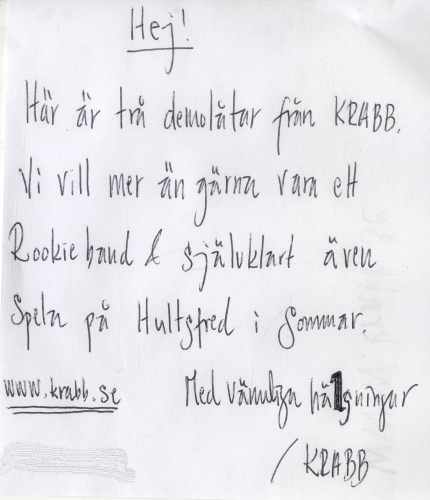 Hej!
Här är två demolåtar från KRABB.
Vi vill mer än gärna vara ett
Rookie band & självklart även
Spela på Hultsfred i Sommar.
www.krabb.se Med vänliga hälsningar
/KRABB